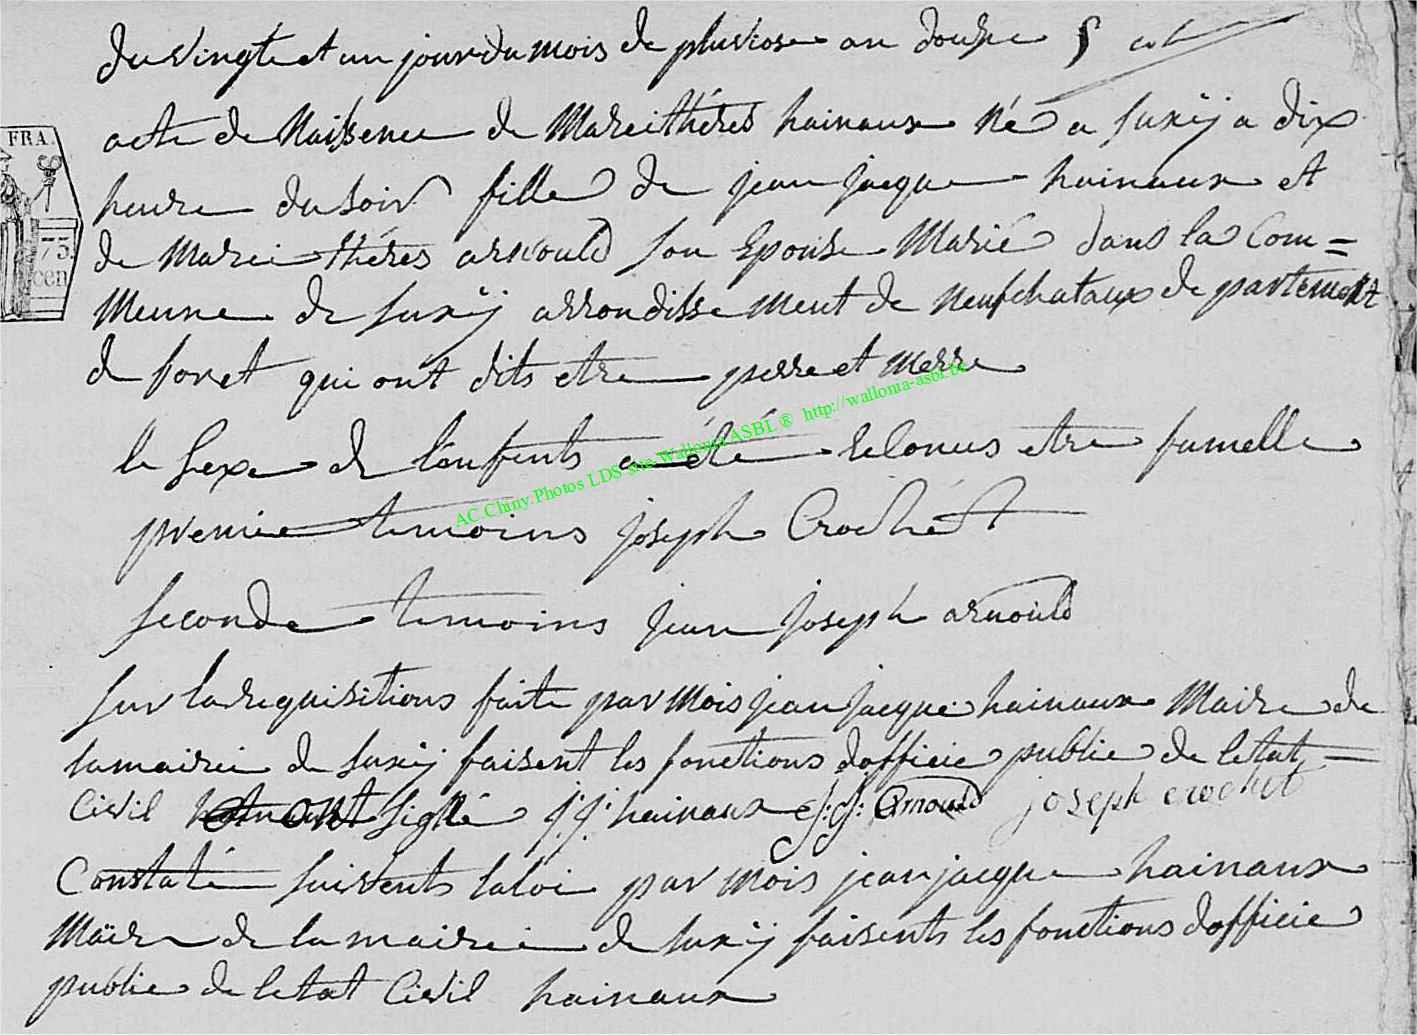 du vingte et un jour du mois de pluviose an douze
acte de Naissence de Mareithéres hainaux Né a suxÿ a dix
heure du soir fille de jean jacque hainaux et
de Marei théres arnould son Epouse Marié dans la Com=
Meune de suxÿ arrondissement de neufchataux de partement
de foret qui ont dits etre perre et merre
le sexe de l'enfents a été reconus etre fumelle
premie temoins joseph Crochét
seconde temoins jean joseph arnould
sur la requisitions faite par mois jean jacque hainaux Maire de
la mairei de suxÿ faisent les fonctions dofficie public de letat
Civil et ont signé j:j: hainaux J:J: Arnould joseph crochet
Constaté suivent la loi par mois jean jacque hainaux
Maire de la mairei de suxÿ faisents les fonctions dofficie
public de letat Civil hainaux
FRA.
75.
cen
AC.Chiny.Photos LDS site Wallonia ASBL ® http://wallonia-asbl.be